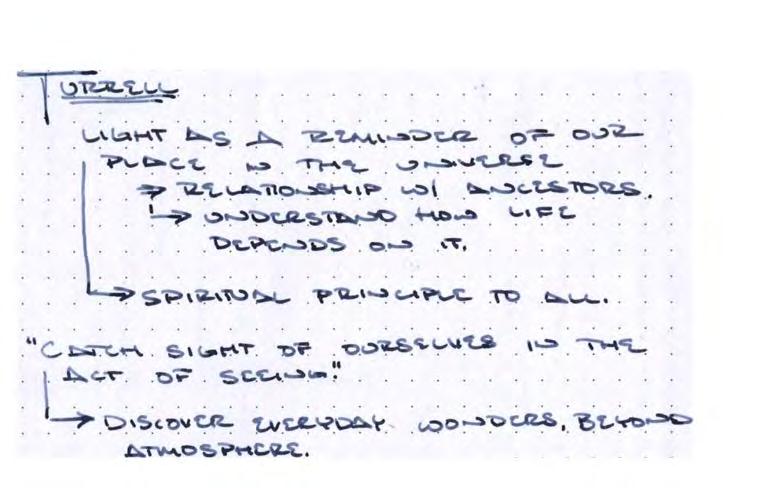 TURRELL
LIGHT AS A REMINDER OF OUR
PLACE IN THE UNIVERSE
⇒ RELATIONSHIP W/ ANCESTORS.
↳ UNDERSTAND HOW LIFE
DEPENDS ON IT.
→ SPIRITUAL PRINCIPLE TO ALL.
"CATCH SIGHT OF OURSELVES IN THE
ACT OF SEEING."
→ DISCOVER EVERYDAY WONDERS, BEYOND
ATMOSPHERE.